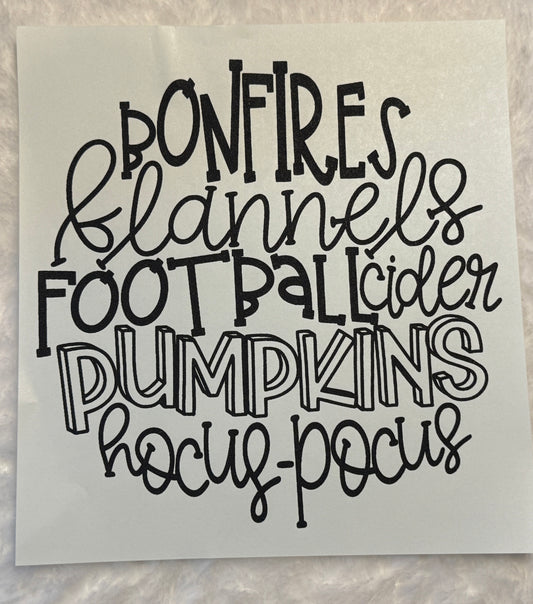 BONFIRES
flannels
FOOTBaLL cider
PUMPKINS
hocus-pocus